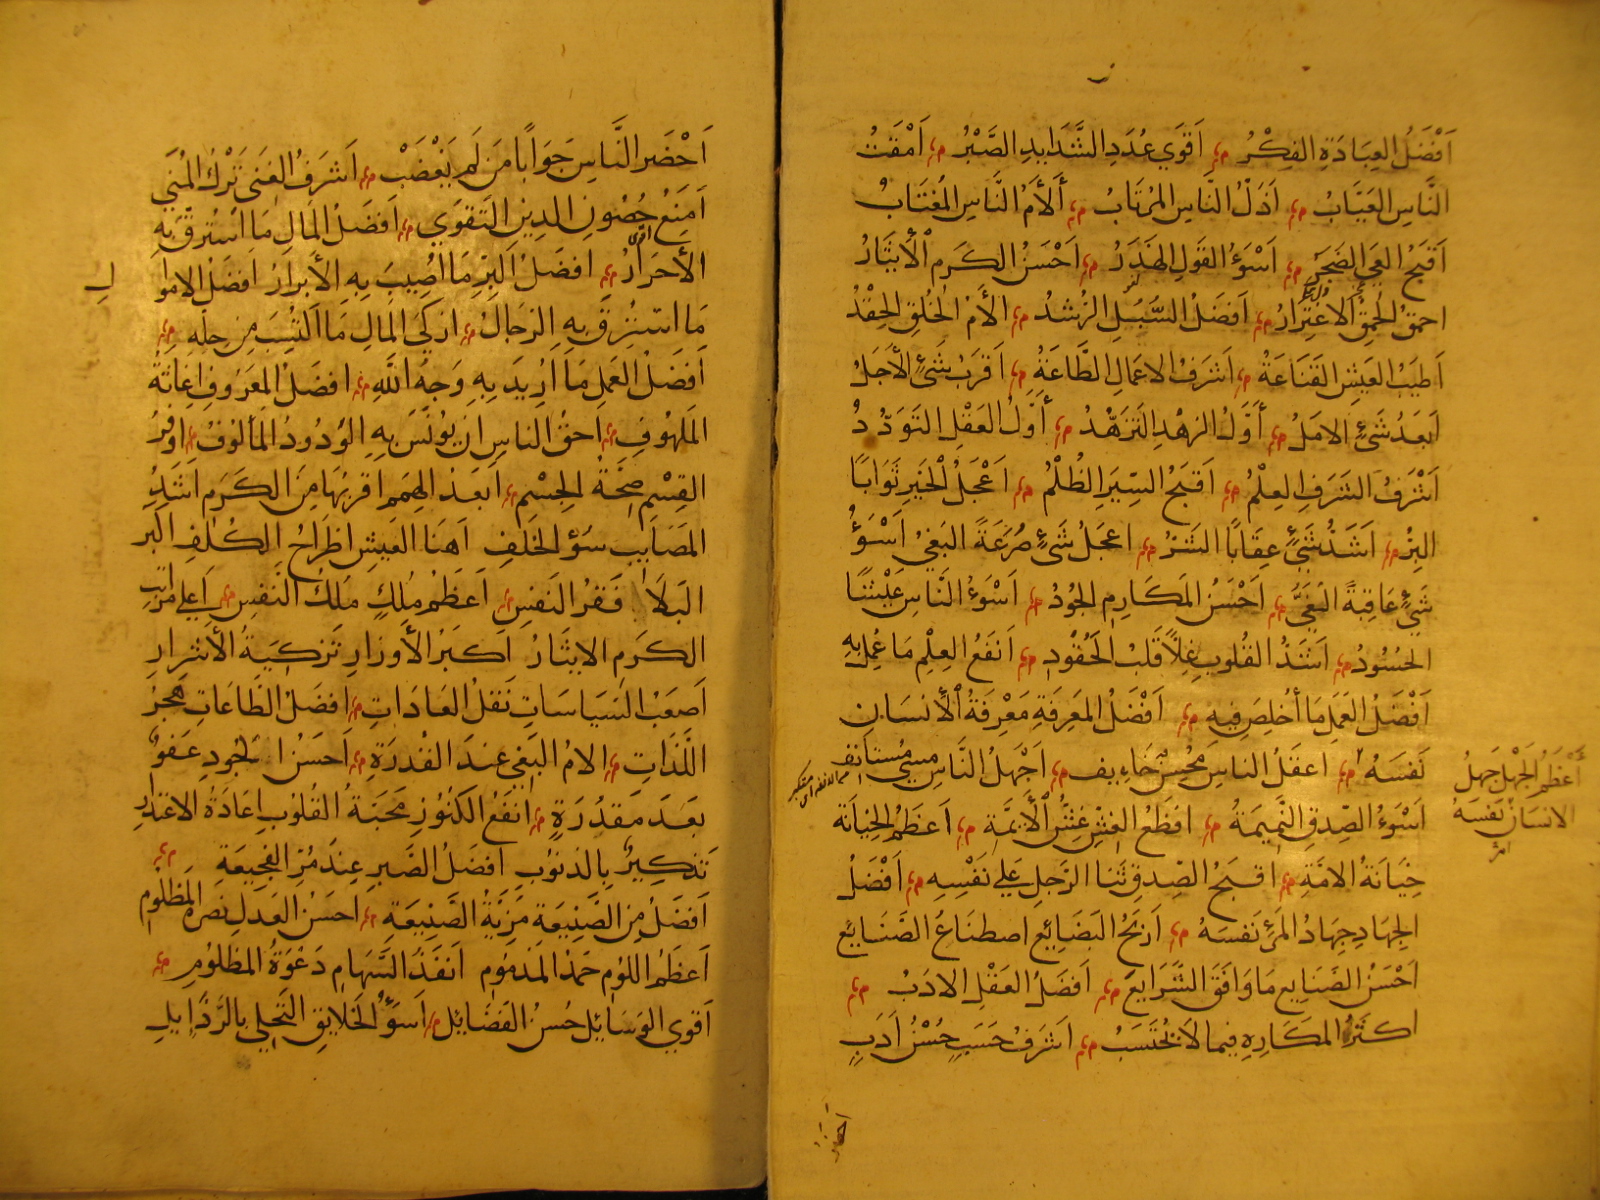 أَفْضَلُ العِبَادَةِ الفِكْرُ أَقْوَي عُدَدِ الشَّدَايِدِ الصَّبْرُ أَمْقَتُ
النَّاسِ العَيَّابُ أَذَلُّ النَّاسِ المُرتَابُ أَلأَمُ النَّاسِ المُغتَابُ
أَقبَحُ العَي الضَجَرُ أَسْوَءُ القَولِ الهَذَرُ أَحْسَنُ الكَرَمِ الأيثَارُ
احمَقُ الحُمقِ الاغْتِرَارُ أَفضَلُ السُّبُلِ الرُّشدُ أَلأَمُ الخُلقِ الحِقْدُ
أَطيَبُ العَيشِ القَنَاعَةُ أَشرَفُ الاعمَالِ الطَّاعَةُ أَقرَبُ شَيْءٍ الأَجَلُ
أَبعَدُ شَيْءٍ الامَلُ أَوَّلُ الزهْدِ التَزَهُّدُ أَوّلُ العَقْلِ التَوَدُّدُ
أَشْرَفُ الشَرَفِ العِلْمُ أَقبَحُ السِيَرِ الظُلْمُ أَعْجَلُ الخَيرِ ثَوَابًا
البِرُّ أَشَدُّ شَيْءٍ عِقَابًا الشَرُّ اعجَلُ شَيْءٍ صَرْعَةً البَغيُ أَسْوَءُ
شَيْءٍ عَاقِبَةً الغَيُّ أَحْسَنُ المَكَارِمِ الجُودُ أَسْوَءُ النَّاسِ عَيْشًا
الحَسُودُ أَشَدُّ القُلُوبِ غِلاًّ قَلبُ الحَقُودِ أَنفَعُ العِلْمِ مَا عُمِلَ بِهِ
أَفْضَلُ العَمَلِ مَا أُخلِصَ فِيهِ أَفْضَلُ المَعرِفَةِ مَعْرِفَةُ الأنسَانِ
نَفسَهُ اعقَلُ الناسِ مُحسِنٌ خَايِف أَجْهَلُ النَّاسِ مسيء مُستَانِف
أَعْظَمُ الجَهْلِ جَهلُ
الانسَانِ نَفسَهُ
أَسْوَءُ الصِدقِ النَّمِيمَةُ افظَعُ الغِشِ غِشُّ الأَئمَّة أَعظَمُ الخِيَانَة
خِيَانَةُ الامّة اقبَحُ الصِدقِ ثَنَا الرَّجلِ عَلي نَفْسِهِ أَفْضَلُ
الجِهَادِ جِهَادُ المَرءِ نَفسَهُ أَربَحُ البَضَائِعِ اصطنَاعُ الصَّنَايِع
أَحْسَنُ الصَنَايِع مَا وَافَقَ الشَّرَايعَ أَفضَلُ العَقْلِ الادَبُ
اكثَرُ المَكَارِهِ فِيما لَا يُحْتَسَبُ أَشرَفُ حَسَبٍ حُسْنُ أَدَبٍ
أَحْضَر النَّاسِ جَوَابًا مَن لَم يَغْضَبْ أَشرَفُ الغِنَى تَرْكُ المُنَي
أَمنَعُ حُصُونِ الدِينِ التَقوَي أَفضَلُ المَالِ مَا اسْتُرِقَّ بِهِ
الأحرَارُ أفضَلُ البِرِّ مَا اُصِيبَ بِهِ الأَبرَارُ افضَلُ الاموَا
مَا استُرِقَّ بِهِ الرّجَالُ ازكَى المَالِ مَا اكتُسِبَ مِن حِلِّهِ
أفضَلُ العَمَلِ مَا اُرِيدَ بِهِ وَجهُ اللّهِ افضَلُ المَعرُوفِ اغاثَةُ
المَلهُوفِ احقُ الناسِ ان يونَسَ بِهِ الوَدُودُ المَألوفُ اوفَرُ
القِسْمِ صِحّةُ الجِسْمِ أبعَدُ الهِمَمِ اقرَبُهَا مِنَ الكَرَم أشَدُّ
المَصَايِب سُوءُ الخَلَفِ أهنَا العَيشِ اطّرَاحُ الكُلَفِ اكبَر
البَلَا فَقرُ النَفسِ أَعظَمُ مُلكٍ مَلكُ النَفسِ أعلي مراتب
الكَرَمِ الايثَارُ أكبَرُ الأوزَارِ تَزكِيَةُ الأشرَارِ
أصعَبُ السِيَاسَاتِ نَقلُ العَادَاتِ افضَلُ الطَاعَاتِ هَجرُ
اللّذَاتِ الامُ البَغي عِندَ القُدرَةِ أحسَنُ الجُودِ عَفوٌ
بَعدَ مَقدُرَةٍ أنفَعُ الكنُوزِ مَحَبّةُ القُلُوبِ اعَادَةُ الاعتذارِ
تَذكِيرٌ بِالذنوُبِ افضَلُ الصَبرِ عِندَ مُرِّ الفَجِيعَةِ
أفضَلُ مِن الصَّنِيعَةِ مَزِيَّةُ الصَّنِيعَةِ احسَنُ العَدلِ نصرة المَظلُوم
أعظَمُ اللّومِ حَمدُ المَذمُومِ أنفَذُ السِّهَامِ دَعْوَةُ المَظلُومِ
أقوي الوَسَايِل حُسنُ الفَضَايِل أسوَءُ الخَلَايِق التَّحَلي بالرَّذايلِ